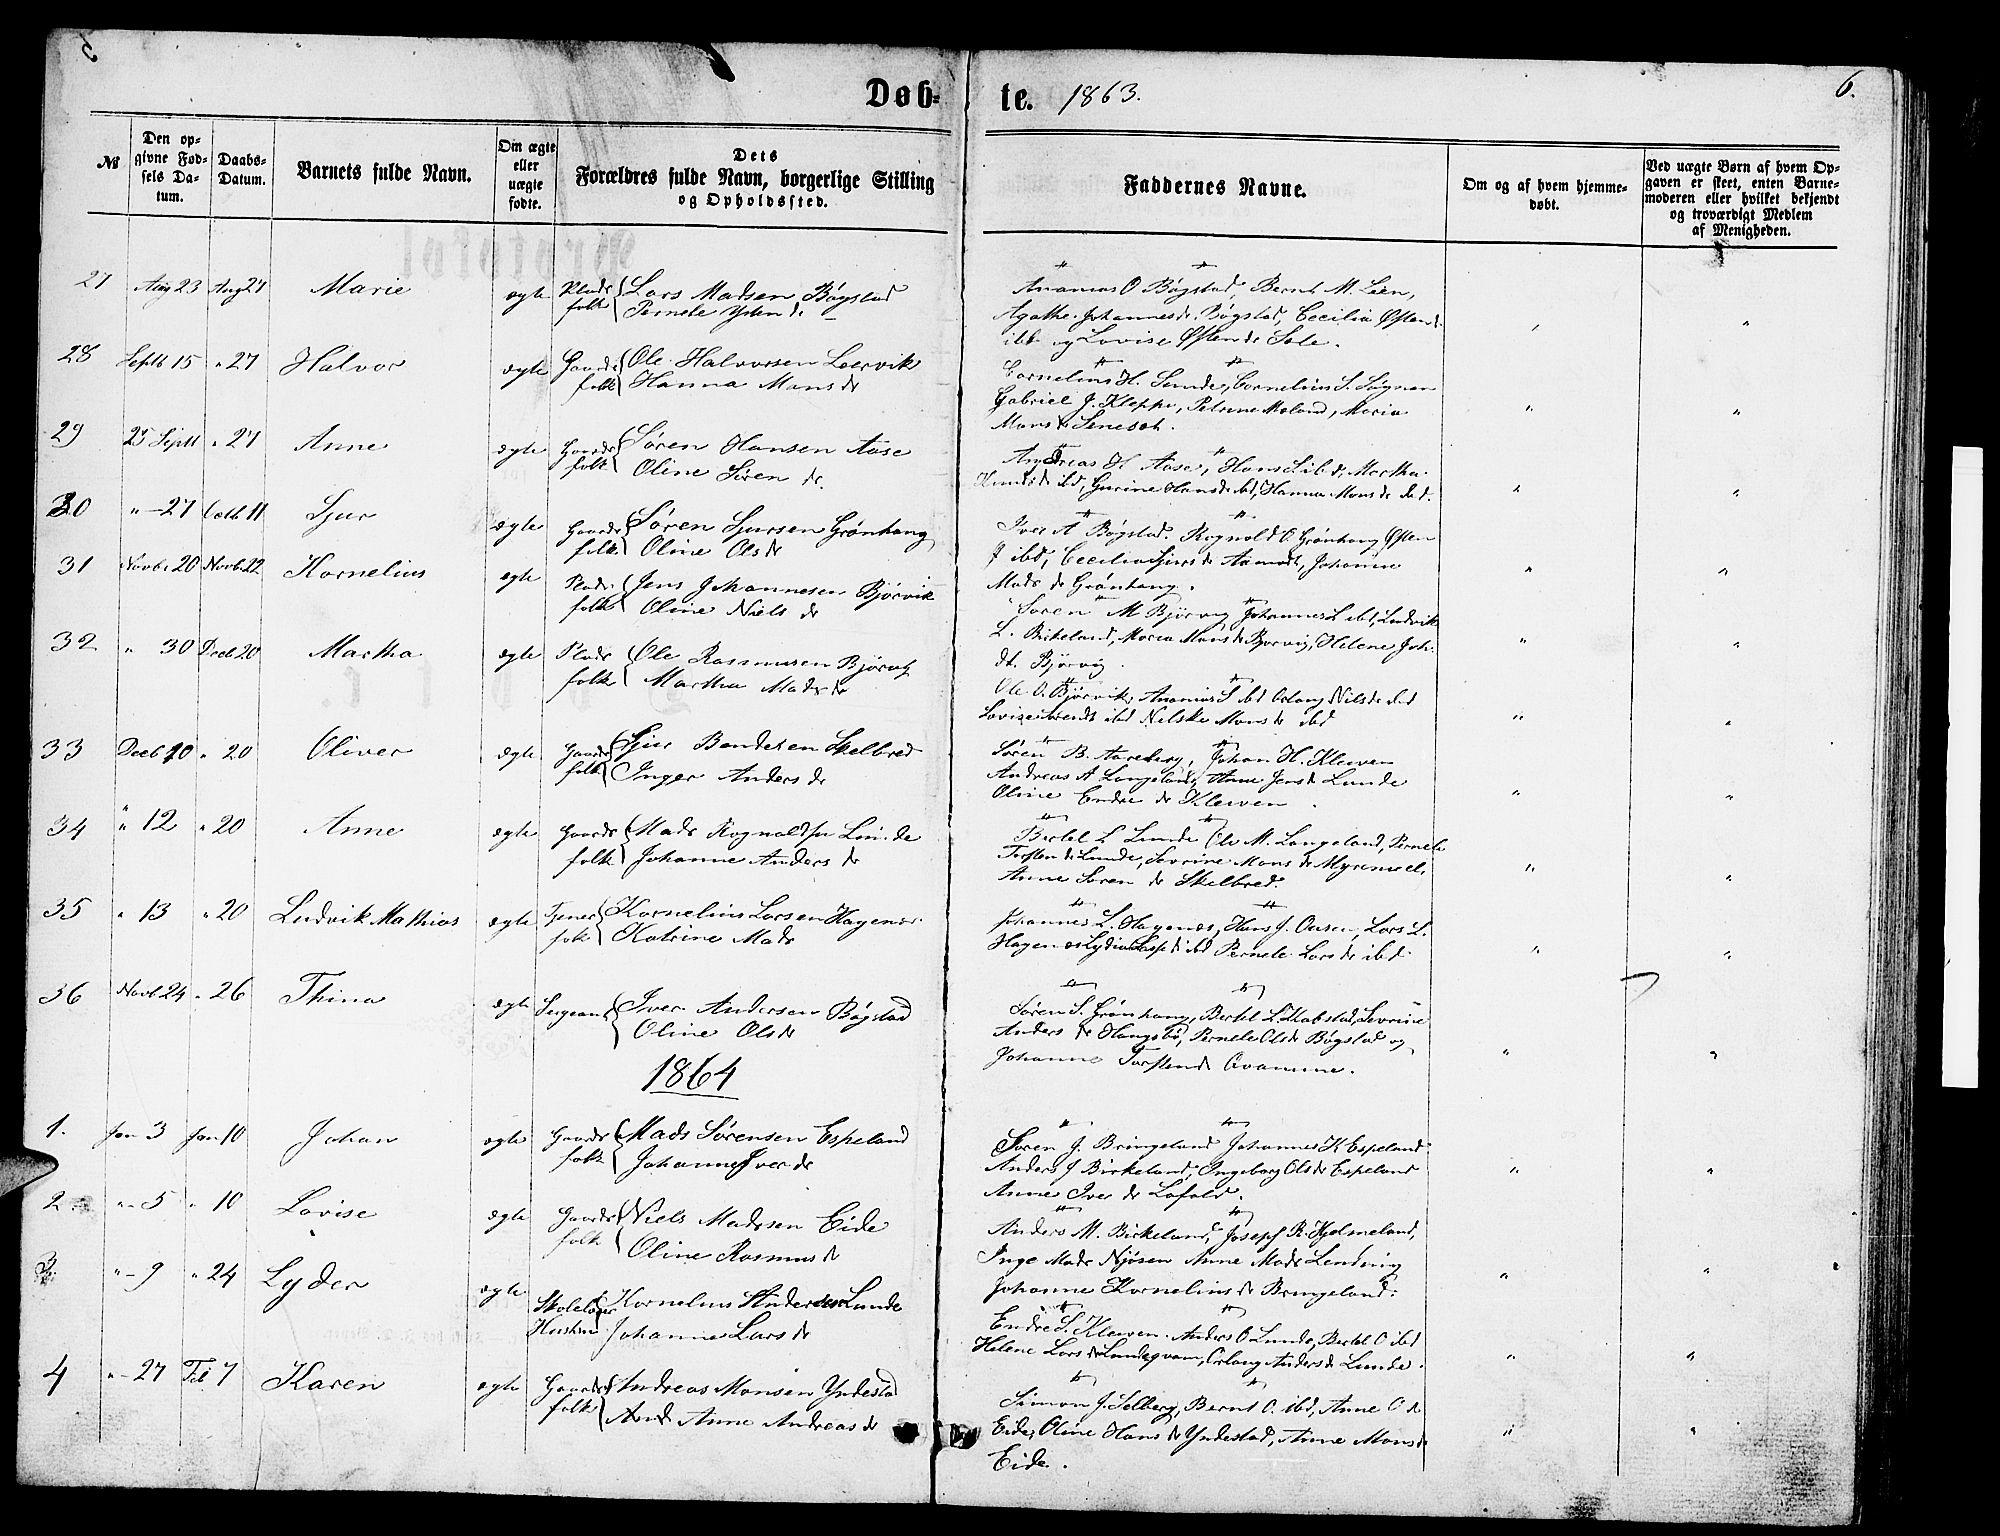 Døb-
te. 1863.
6.
№
Den op-
givne Fød-
sels Da-
tum.
Daabs-
Datum.
Barnets fulde Navn.
Om ægte
eller
uægte
fødte.
Dets
Forældres fulde Navn, borgerlige Stilling
og Opholdssted.
Faddernes Navne.
Om og af hvem hjemme-
døbt.
Ved uægte Børn af hvem Op-
gaven er skeet, enten Barne-
moderen eller hvilket bekjendt
og troværdigt Medlem
af Menigheden.
27 Aug 23 Aug 27 Marie ægte Plads folk Lars Madsen Bøgstad
Pernele
Ananias O Bøgstad, Bernt M. Leen,
Agathe Johannesdr Bøgstad, Cecilia
ibd og Lovise Sole.
28 Septb 15 " 27 Halvor ægte Gaardfolk Ole Halvorsen Leervik
Hanna Mons dr
Cornelius H. Sunde, Cornelius S. Søgnen
Gabriel J. Kleppe, Petrine Moland, Maria
Mons
29 25 Septb " 27 Anne ægte Gaardfolk Søren Hansen Aase
Oline Søren dr.
Andreas H Aase, Hans ibd, Martha
Knuds dr ibd, Gurine Hansdr ibd, Hanna Mons dr ibd.
30 " 27 Octb 11 Sjur ægte Gaardfolk Søren Sjursen Grønhaug
Oline Olsdr
Iver A Bøgstad. Rognald O. Grønhaug
ibd, Cecilia Sjursdr Aamodt, Johanne
Mads dr Grønhaug.
31 Novb. 20 Novb. 22 Kornelius ægte Pladsfolk Jens Johannesen Bjørvik
Oline Niels dr
Søren M Bjørvig Johannes L ibd, Ludvik
L. Birkeland, Maria Mons dr Bjørvig, Helene Joh.
dr. Bjørvig.
32 " 30 Decb 20 Martha ægte Pladsfolk Ole Rasmusen Bjørvig
Martha Mads dr
Ole O. Bjørvik, Ananias S ibd Nilsdr ibd
Lovise ibd Nilske Mons dr ibd
33 Decb 10 " 20 Oliver ægte Gaardfolk Sjur Bendesen Skelbred
Inger Anders dr
Søren B. Aareberg, Johan H. Klewen
Andreas A Langeland, Anne Jensdr Lunde
Oline Endre dr Klewen.
34 " 12 " 20 Anne ægte Gaardsfolk Mads Rognalds. Lunde
Johanne Anders dr
Bertel L Lunde Ole M. Langeland, Pernele
Torsten dr Lunde, Severine Mons dr
Anne Søren dr Skelbred.
35 " 13 " 20 Ludvik Mathias ægte Tjener folk Kornelius Larsen Hagenæs
Katrine Mads
Johannes L. Hagenes, Hans J. Lars L.
Hagenæs Lydia ibd Pernele Lars dr ibd
36 Novb. 24 " 26 Thina ægte Sergeant Iver Andersen Bøgstad
Oline Olsdr
Søren S. Grønhaug, Bertel L. Severine
Anders dr Pernele Olsdr Bøgstad og
Johanne Torstendr
1864
1. Jan 3 Jan 10 Johan ægte Gaardsfolk Mads Sørensen Espeland
Johanne Iver dr
Søren J. Bringeland Johannes K Espeland
Anders J Birkeland, Ingeborg Olsdr Espeland
Anne Iver dr
2. " 5 " 10 Lovise ægte Gaardsfolk Niels Madsen Eide
Oline Rasmus dr
Anders M. Birkeland, Josepf R. Hjelmeland,
Inge Mads Njøsen Anne Mads
Johanne Kornelius dr Bringeland.
3. " 9 " 24 Lyder ægte Skolelærer Hustru Kornelius Andersen Lunde
Johanne Lars dr
Endre S. Klewen. Anders O Lunde, Bertel O ibd
Helene Lars dr Anders dr Lunde.
4 " 27 Feb 7 Karen ægte Gaardsfolk Andreas Monsen Yndestad
Anne Andreas dr
Simon J. Selberg, Bernt O. ibd, Anne O dr
Eide, Oline Hans dr Yndestad, Anne Mons dr
Eide.